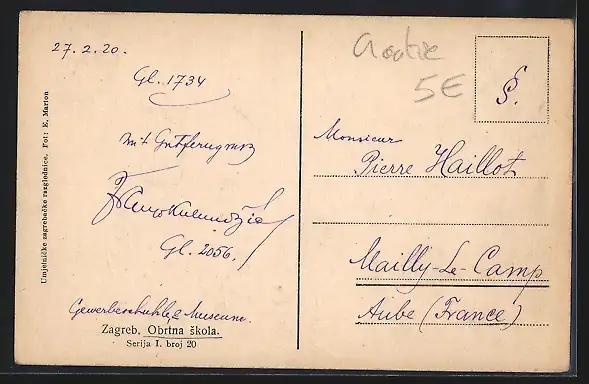 27.2.20.
Gl. 1734
mit
Gl. 2056.
Gewerbeschuhle & Museum.
Zagreb. Obrtna škola.
Serija I. broj 20
Umjetničke zagrebačke razglednice. Fot: E. Marion
5E
§.
Monsieur
Pierre Haillot
Mailly-Le-Camp
Aube (France)